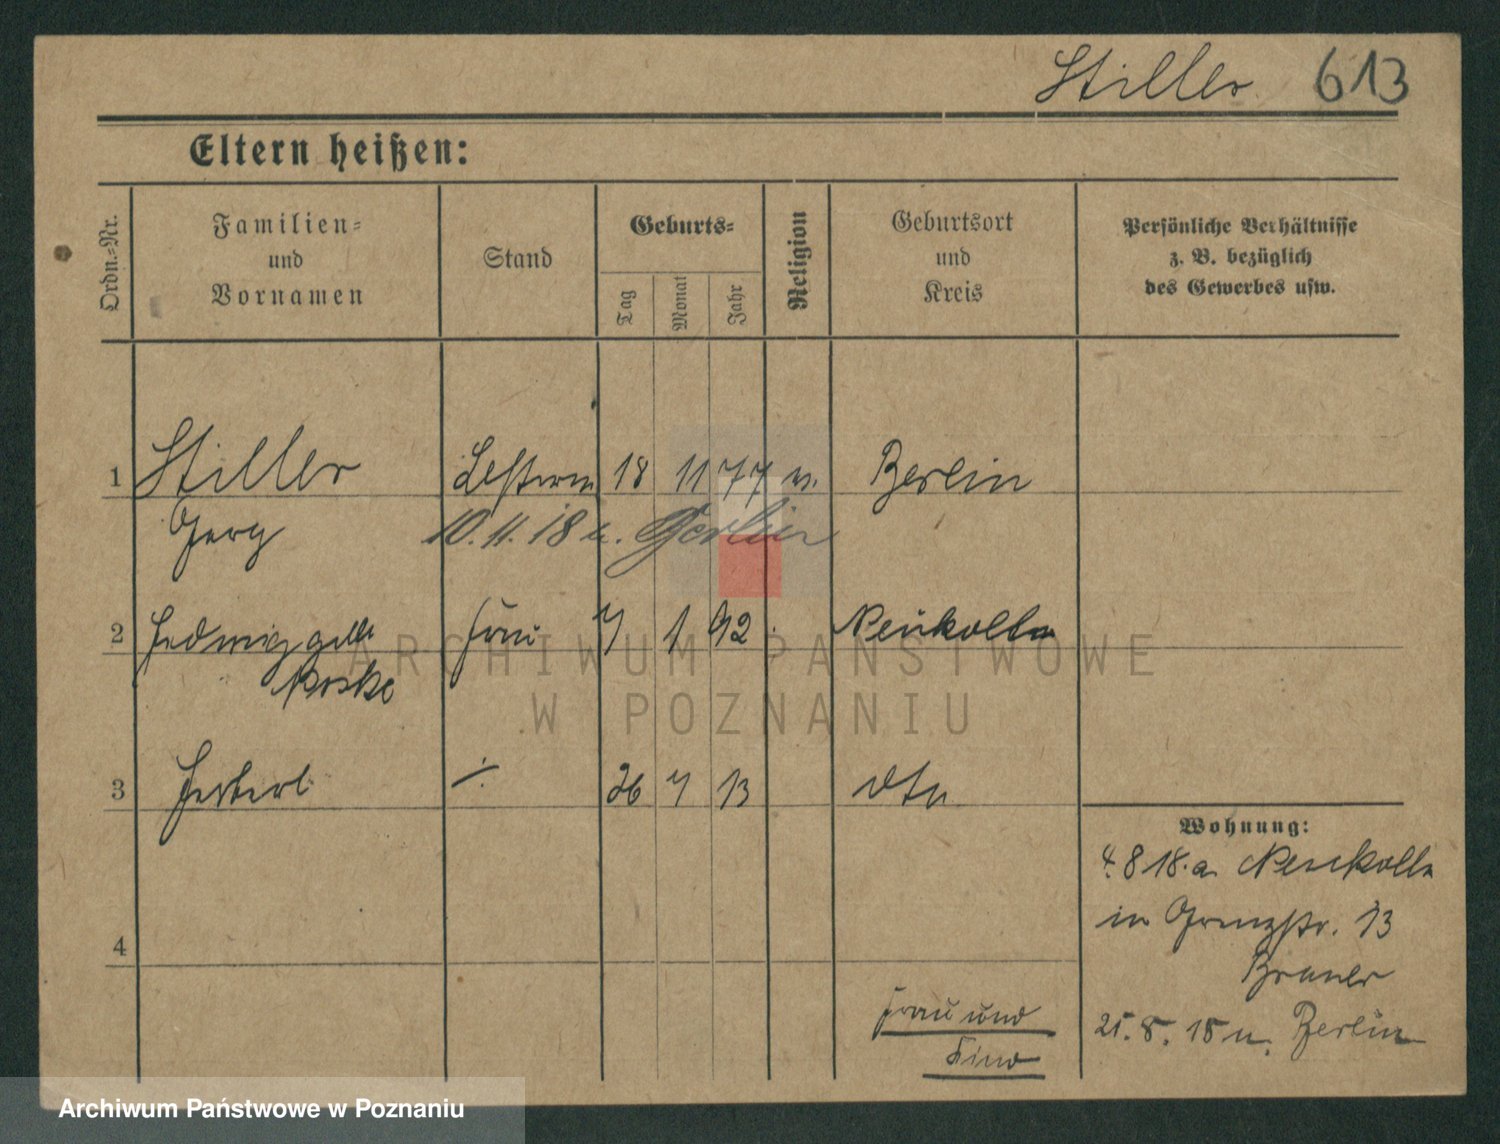 Stiller 613
Eltern heißen:
Ordn.-Nr.
Familien-
und
Vornamen
Stand
Geburts-
Tag
Monat
Jahr
Religion
Geburtsort
und
Kreis
Persönliche Verhältnisse
z. B. bezüglich
des Gewerbes usw.
1 Stiller 18 11 77 Berlin
10. 11. 18 n. Berlin
2 Hedwig geb. Frau 7 1 92 Neukölln
Koske
3 Herbert ÷ 26 7 13 dto
Wohnung:
4. 8 18. a. Neukölln
in Grenzstr. 13
Frau und
Kind
25. 8. 18 n. Berlin
4
ARCHIWUM PAŃSTWOWE
W POZNANIU
Archiwum Państwowe w Poznaniu